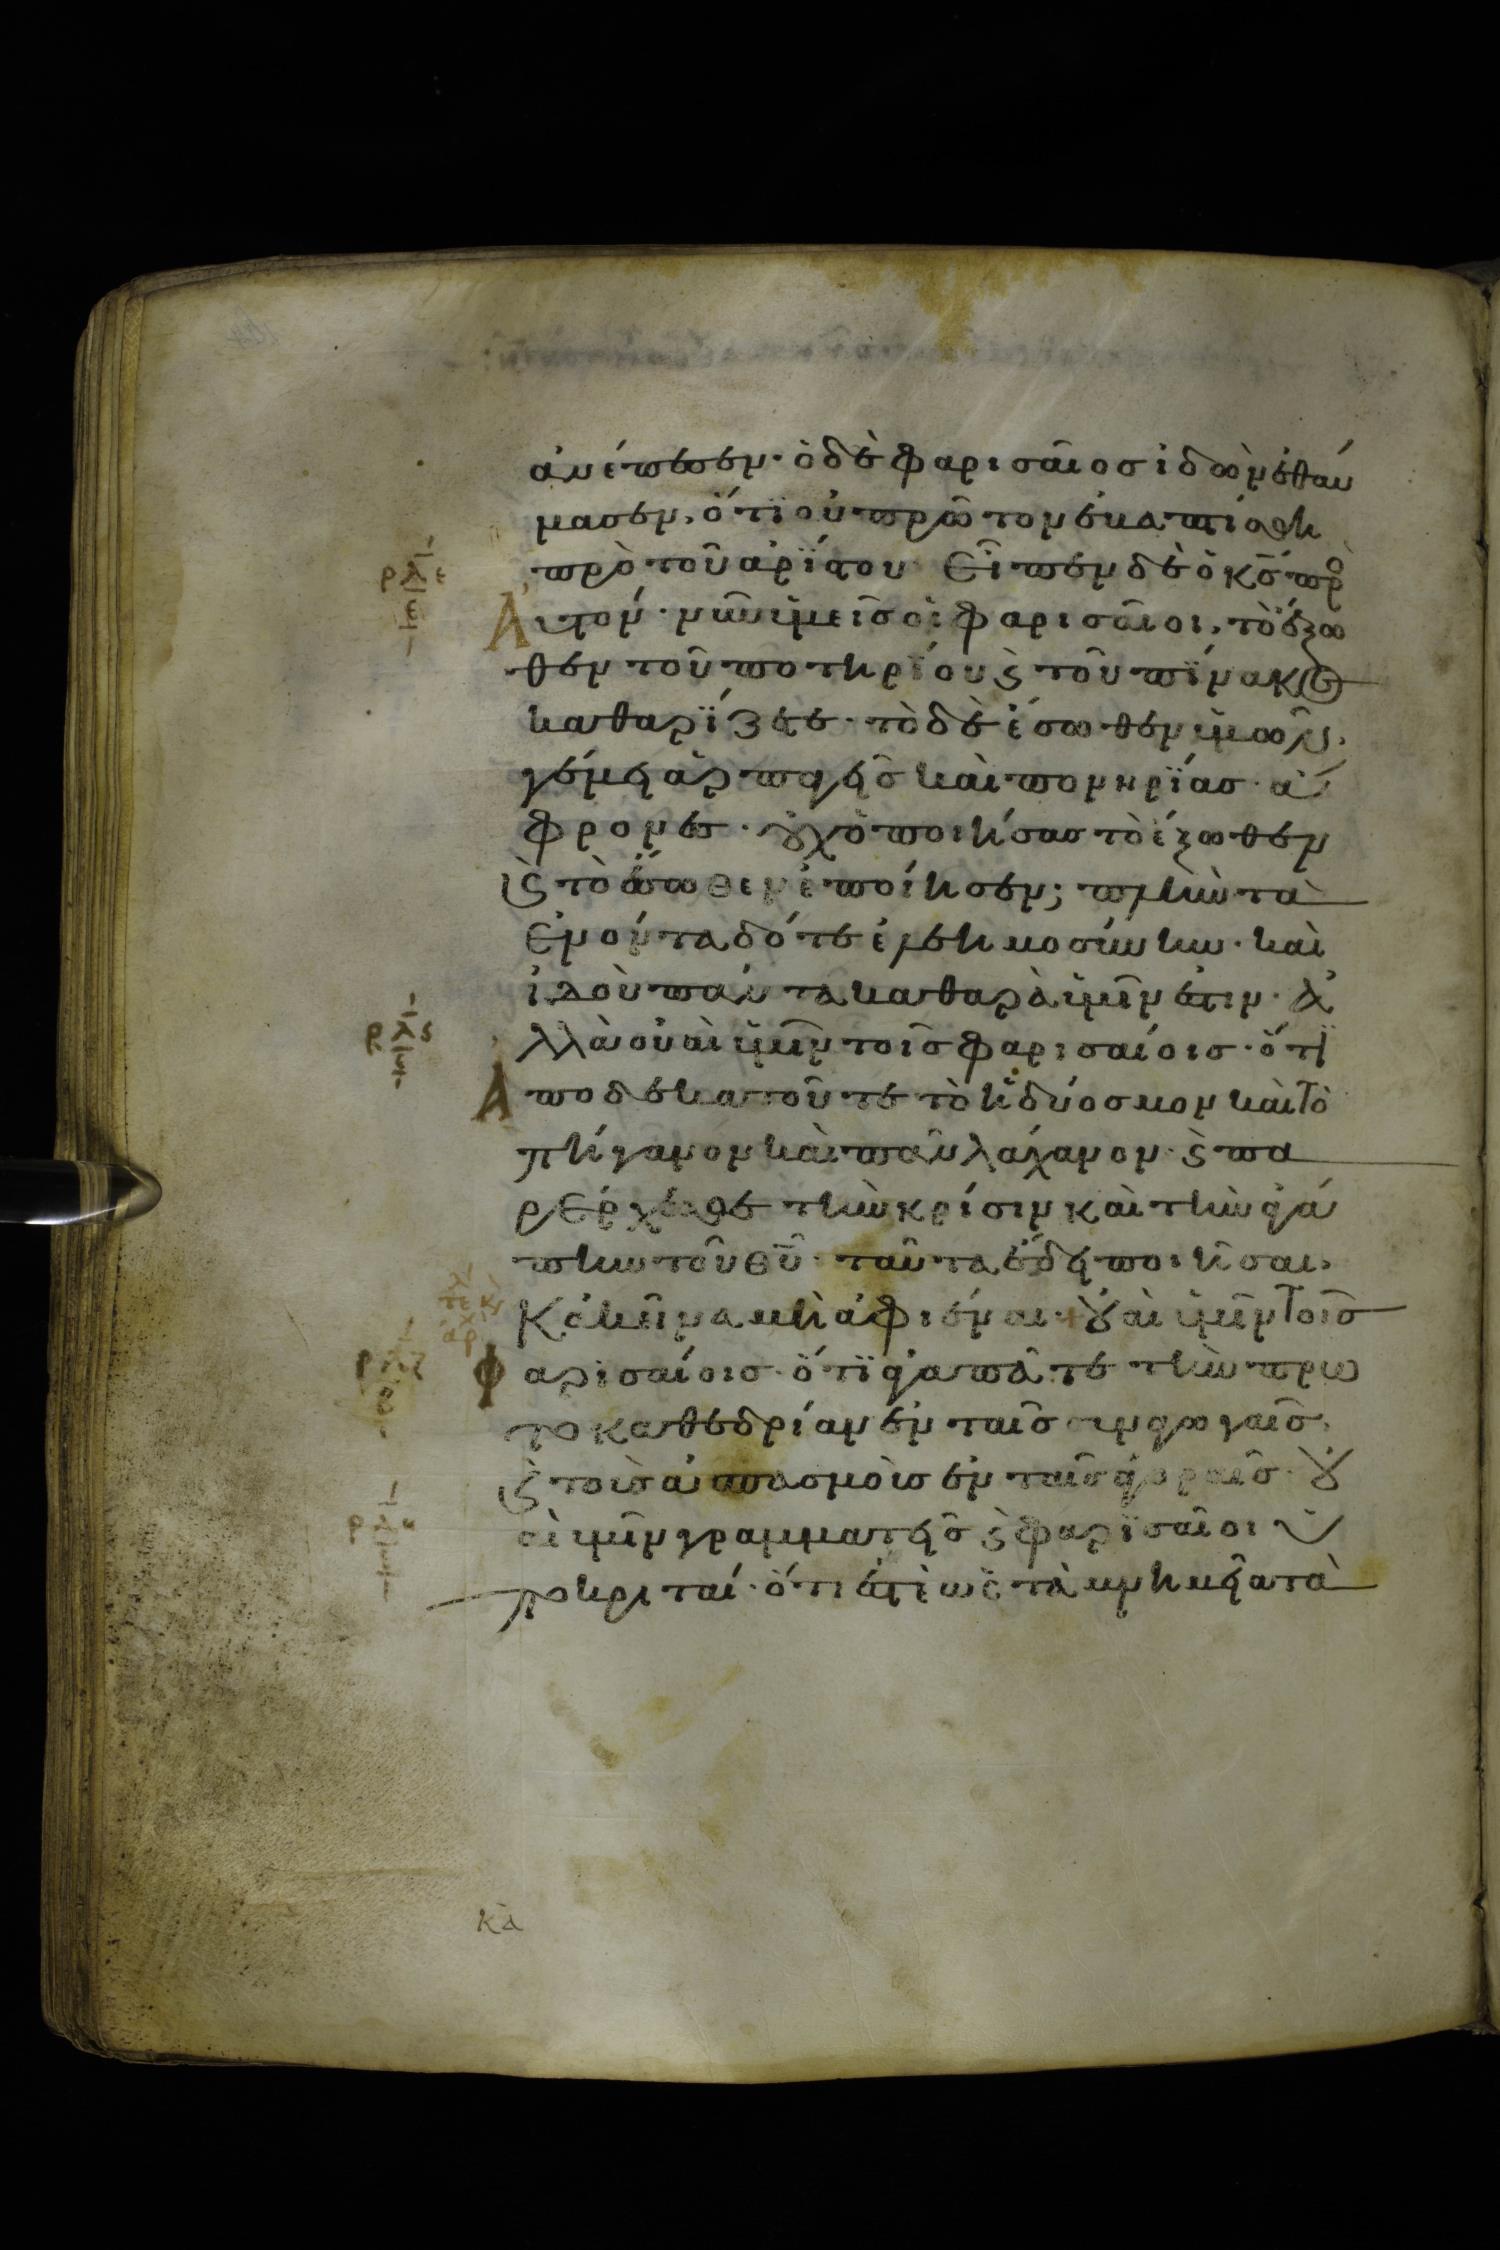 ἀνέπεσεν· ὁ δὲ φαρισαῖος ἰδὼν ἐθαύ
μασεν, ὅτϊ οὐ πρῶτον ἐβαπτίσθη
πρὸ τοῦ ἀρϊστου· Εἶπεν δὲ ὁ κς πρὸ
Ἀυτον· νῦν ὑμεῖς οἱ φαρισαῖοι, τὸ ἔξω
θεν τοῦ ποτηρϊου ϛ τοῦ πϊνακος
καθαρϊζετε· τὸ δὲ ἔσωθεν ὑμῶν,
γέμει ἁρπαγῆς καὶ πονηρϊας· ἄ
φρονες· οὐχ ὁ ποιήσας τὸ ἔξωθεν
ϛ τὸ ἔσωθεν ἐποίησεν; πλὴν τὰ
ἐνόντα δότε ἐλεημοσύνην· καὶ
ἰδοὺ πάντα καθαρὰ ὑμῖν ἐστιν· ἀ
λλὰ οὐαὶ ὑμῖν τοῖς φαρισαίοις· ὅτϊ
Ἀποδεκατοῦτε τὸ ἡδύοσμον καὶ τὸ
πήγανον καὶ πᾶν λάχανον· ϛ πα
ρέρχεσθε τὴν κρίσιν καὶ τὴν ἀγά
πην τοῦ θυ· ταῦτα ἔδει ποιῆσαι,
Κἀκεῖνα μὴ ἀφιέναι· + οὐαὶ ὑμῖν τοῖς
Φαρισαίοις· ὅτϊ ἀγαπᾶτε τὴν πρω
τοκαθεδρίαν ἐν ταῖς συναγωγαῖς,
ϛ τοὺς ἀσπασμοὺς ἐν ταῖς ἀγοραῖς· οὐ
αὶ ὑμῖν γραμματεῖς ϛ φαρϊσαῖοι ὑ
ποκριταί· ὅτι ἐστὲ ὡς τὰ μνημεῖα τὰ
ρλε
ρλϛ
ρλζ
ρλη
κὰ